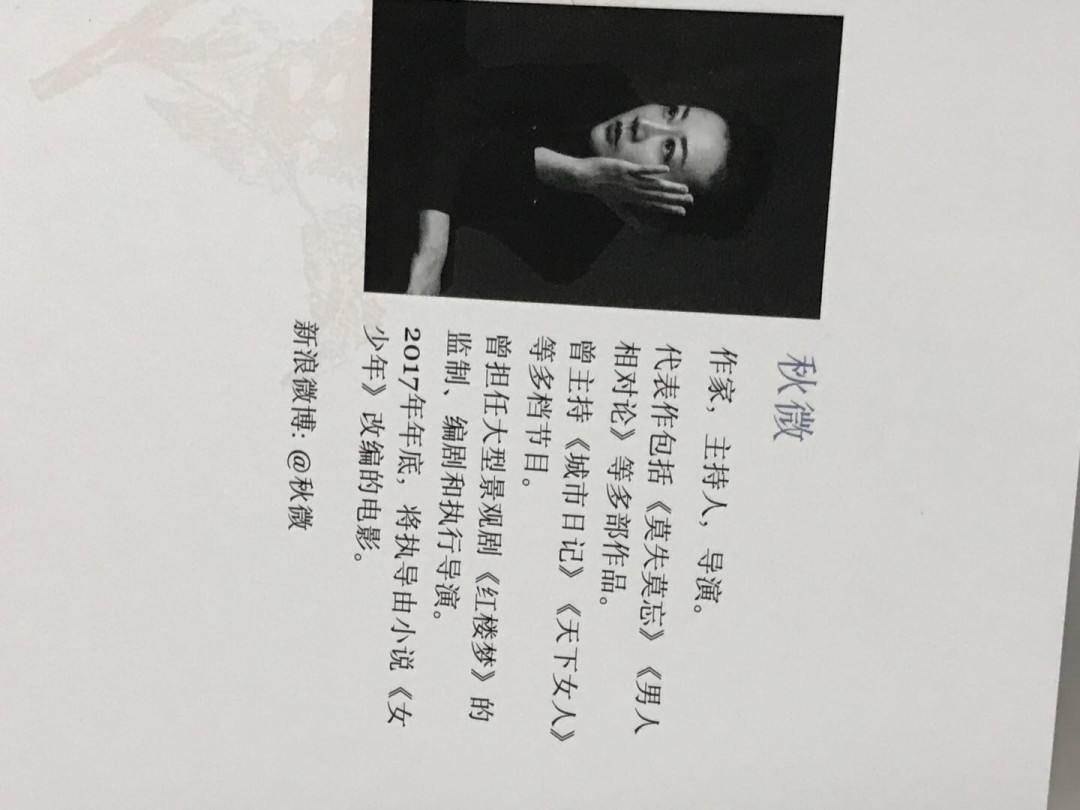 秋微
作家，主持人，导演。
代表作包括《莫失莫忘》《男人
相对论》等多部作品。
曾主持《城市日记》《天下女人》
等多档节目。
曾担任大型景观剧《红楼梦》的
监制、编剧和执行导演。
2017年年底，将执导由小说《女
少年》改编的电影。
新浪微博: @秋微